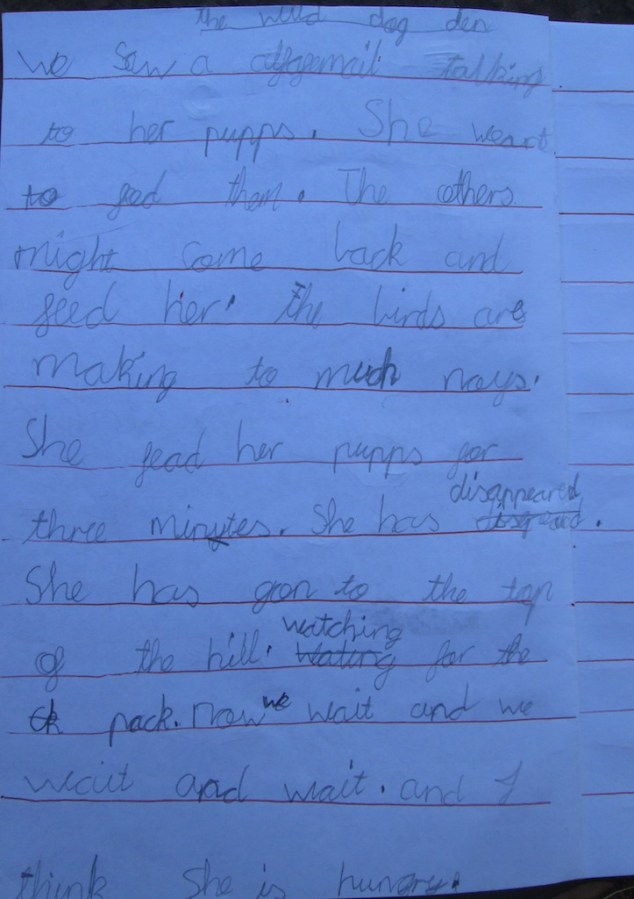 the wild dog den
we saw a affgemail talking
to her pupps. She weart
to fed them. The others
might come back and
feed her. the birds are
making to much noys.
She fead her pupps for
three minytes. She has disappeared.
She has gon to the top
of the hill. watching for the
pack. now we wait and we
wait and wait. and I
think she is hungry.